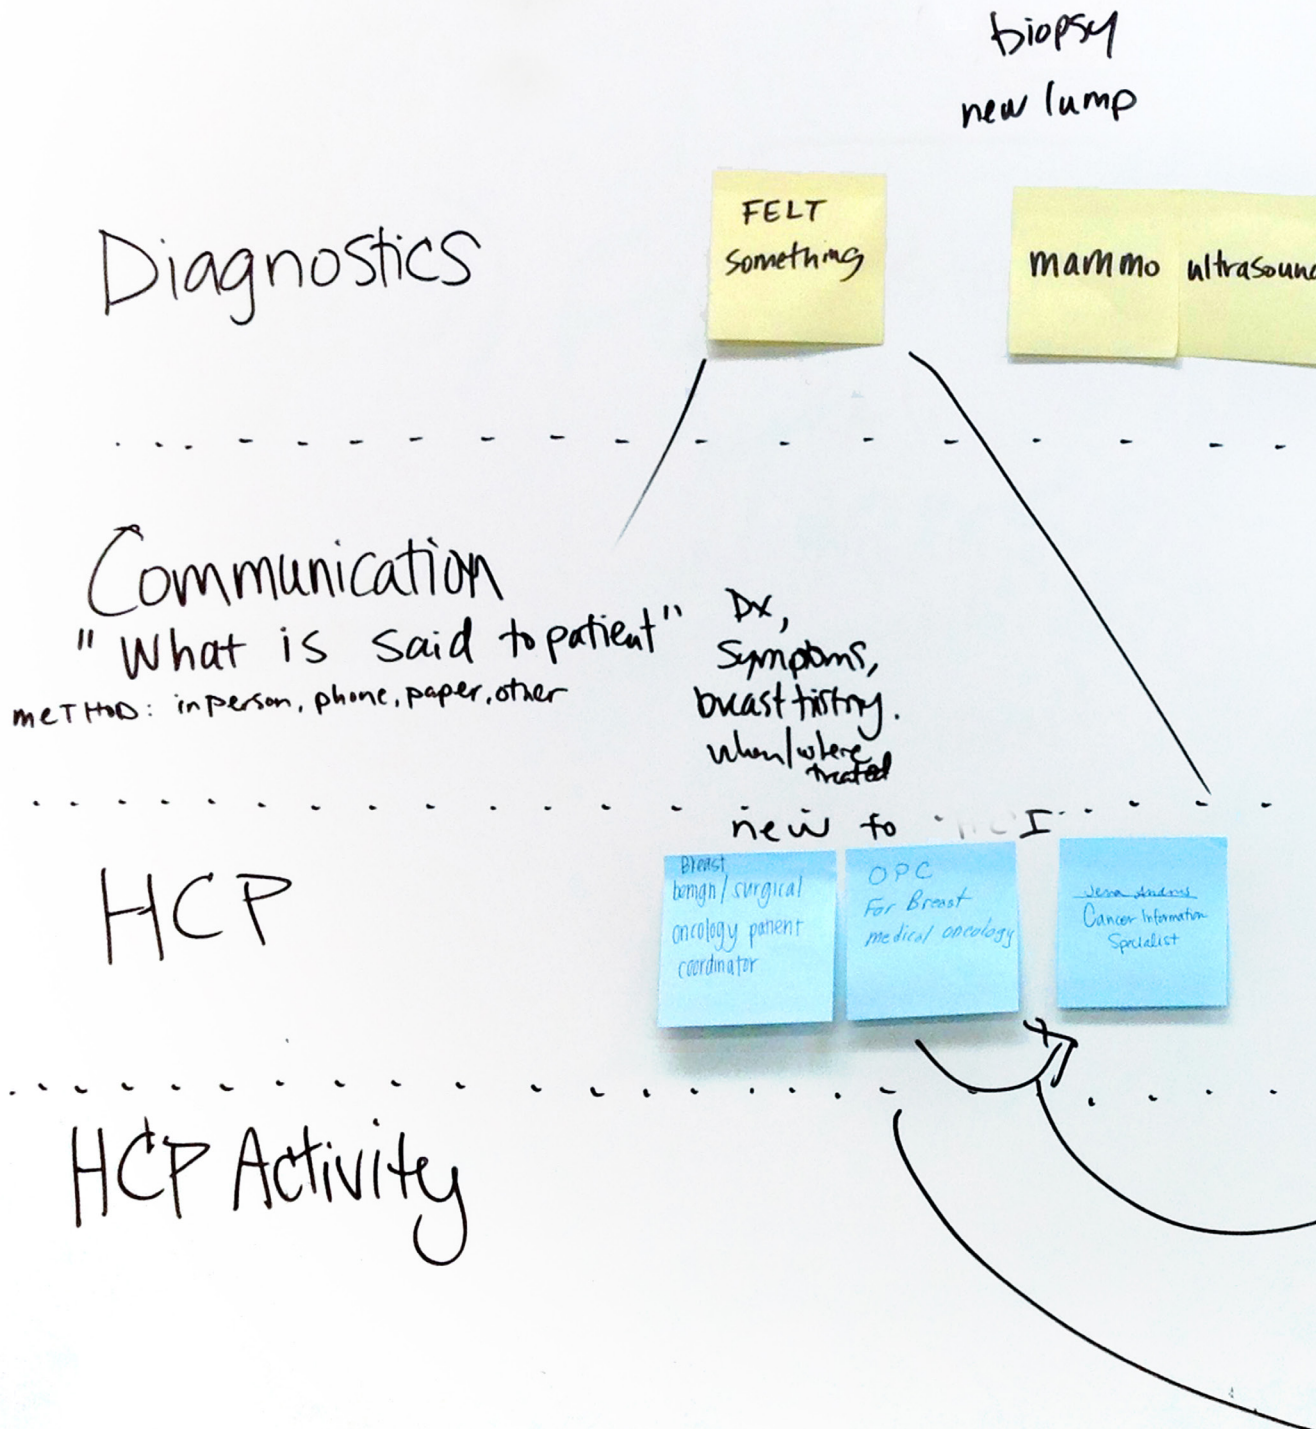 biopsy
new lump
FELT
something
mammo
ultrasound
Diagnostics
Communication
"What is said to patient"
METHOD: in person, phone, paper, other
Dx,
Symptoms,
breast history.
when/where
treated
new to
HCP
Breast
benign/surgical
oncology patient
coordinator
OPC
For Breast
medical oncology
Cancer Information
Specialist
HCP Activity